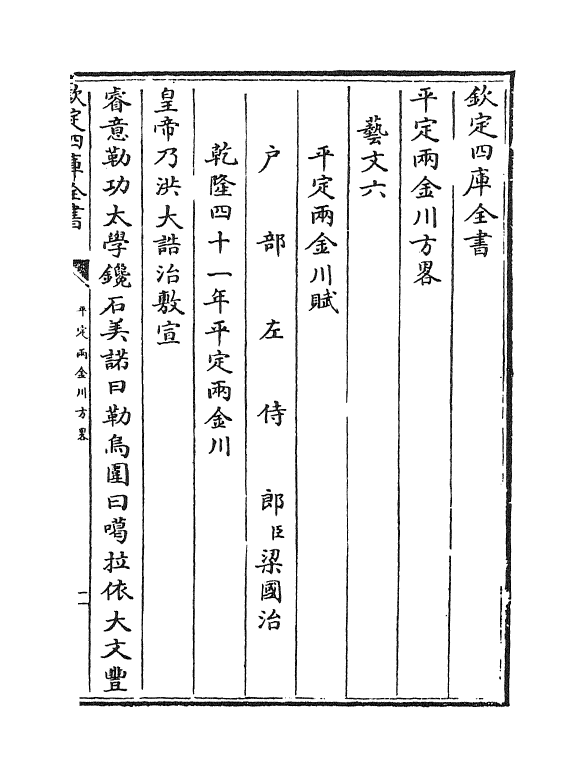 欽定四庫全書
平定兩金川方畧
藝文六
平定兩金川賦
户部左侍郎臣梁國治
乾隆四十一年平定兩金川
皇帝乃洪大誥治敷宣
睿意勒功太學鑱石美諾曰勒烏圍曰噶拉依大文豐
欽定四庫全書
平定兩金川方畧
二